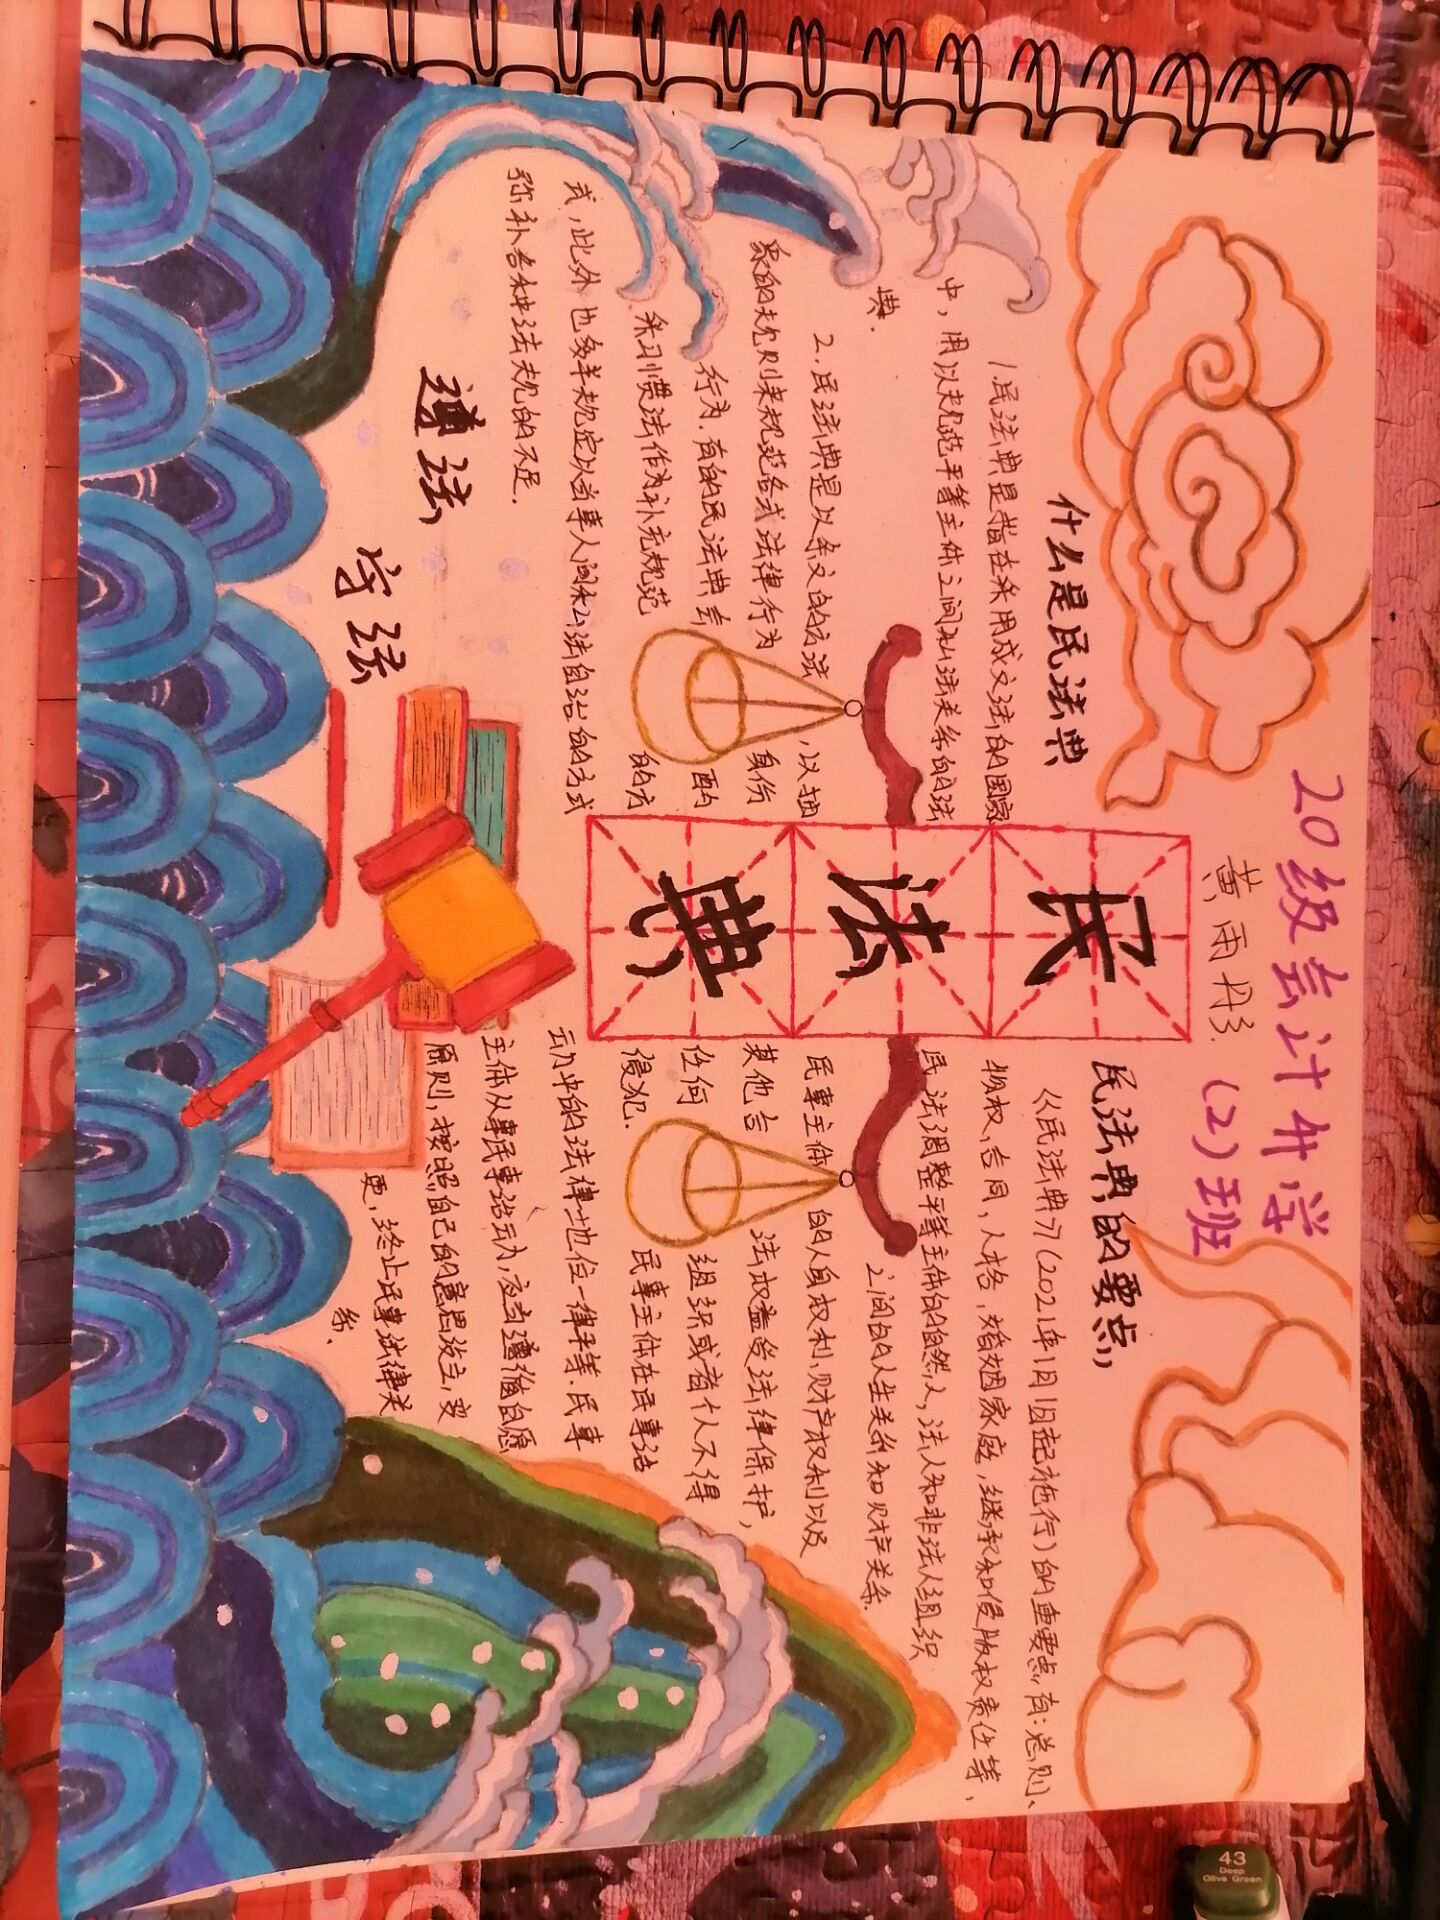 20级会计升学
(2)班
黄雨彤.
民法典
什么是民法典
1.民法典是指在采用成文法的国家
中,用以规范平等主体之间私法关系的法
典.
2.民法典是以条文的方法,以抽
象的规则来规范各式法律行为 身份
行为.有的民法典会 酌
采习惯法作为补充规范 的方
式,此外也多半规定以当事人间私法自治的方式
弥补各种法规的不足.
遵法
守法
民法典的要点,
《民法典》(2021年1月1日起施行)的重要点有:总则、
物权,合同,人格,婚姻家庭,继承和侵版权责任等,
民法调整平等主体的自然人,法人和非法人组织
之间的人生关系和财产关系.
民事主体 的人身权利,财产权利以及
其他合 法权益受法律保护,
任何 组织或者个人不得
侵犯. 民事主体在民事活
动中的法律地位一律平等.民事
主体从事民事活动,应当遵循自愿
原则,按照自己的意思设立,变
更,终止民事法律关
系.
43
Deep
Olive Green